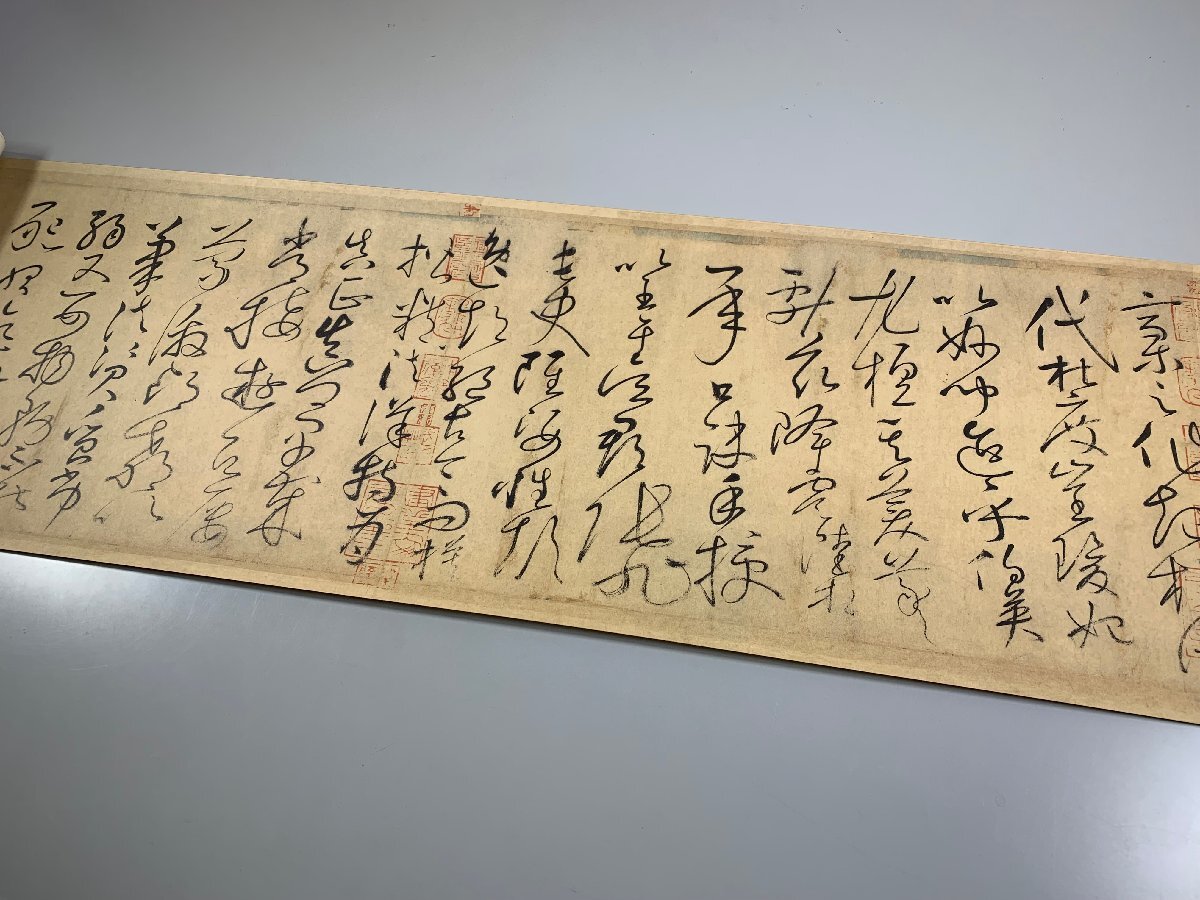 藁之作起於漢
代杜度崔瑗始
以妙聞迨乎伯英
尤擅其美羲
獻茲降虞陸相
承口訣手授
以至于吳郡張旭
長史雖姿性顛
逸超絕古今而模
楷精法詳特為
真正真卿早歲
常接遊居屢
蒙激昂教以
筆法資質劣
弱又嬰物務不
能懇習迄以無